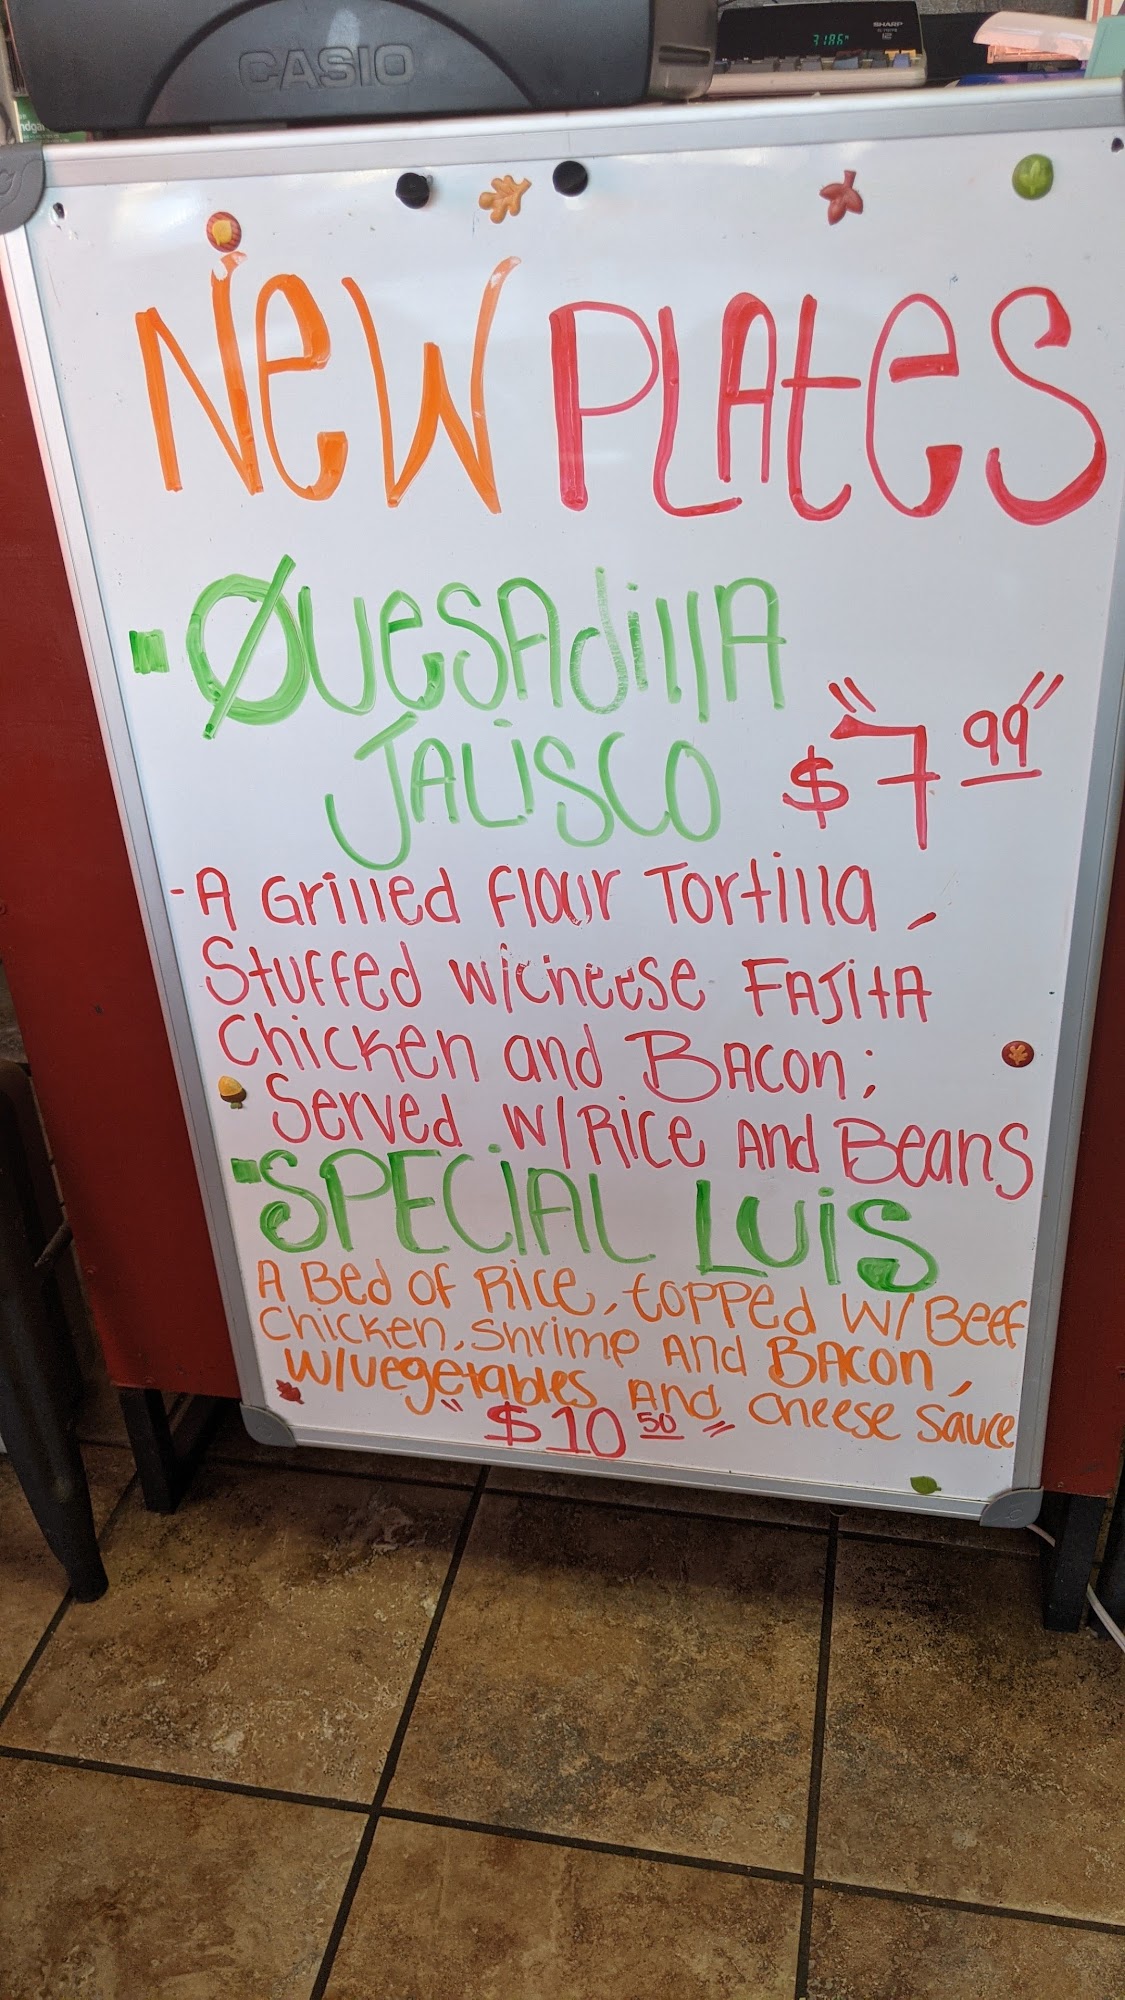 CASIO
SHARP
NEW PLATES
QUESADILLA
JALISCO $7.99
- A Grilled Flour Tortilla,
Stuffed w/cheese FAJITA
Chicken and BACON;
Served w/Rice AND Beans
SPECIAL LUIS
A Bed OF Rice, topped w/ Beef
Chicken, Shrimp AND BACON,
w/vegetables AND cheese sauce
"$10.50"